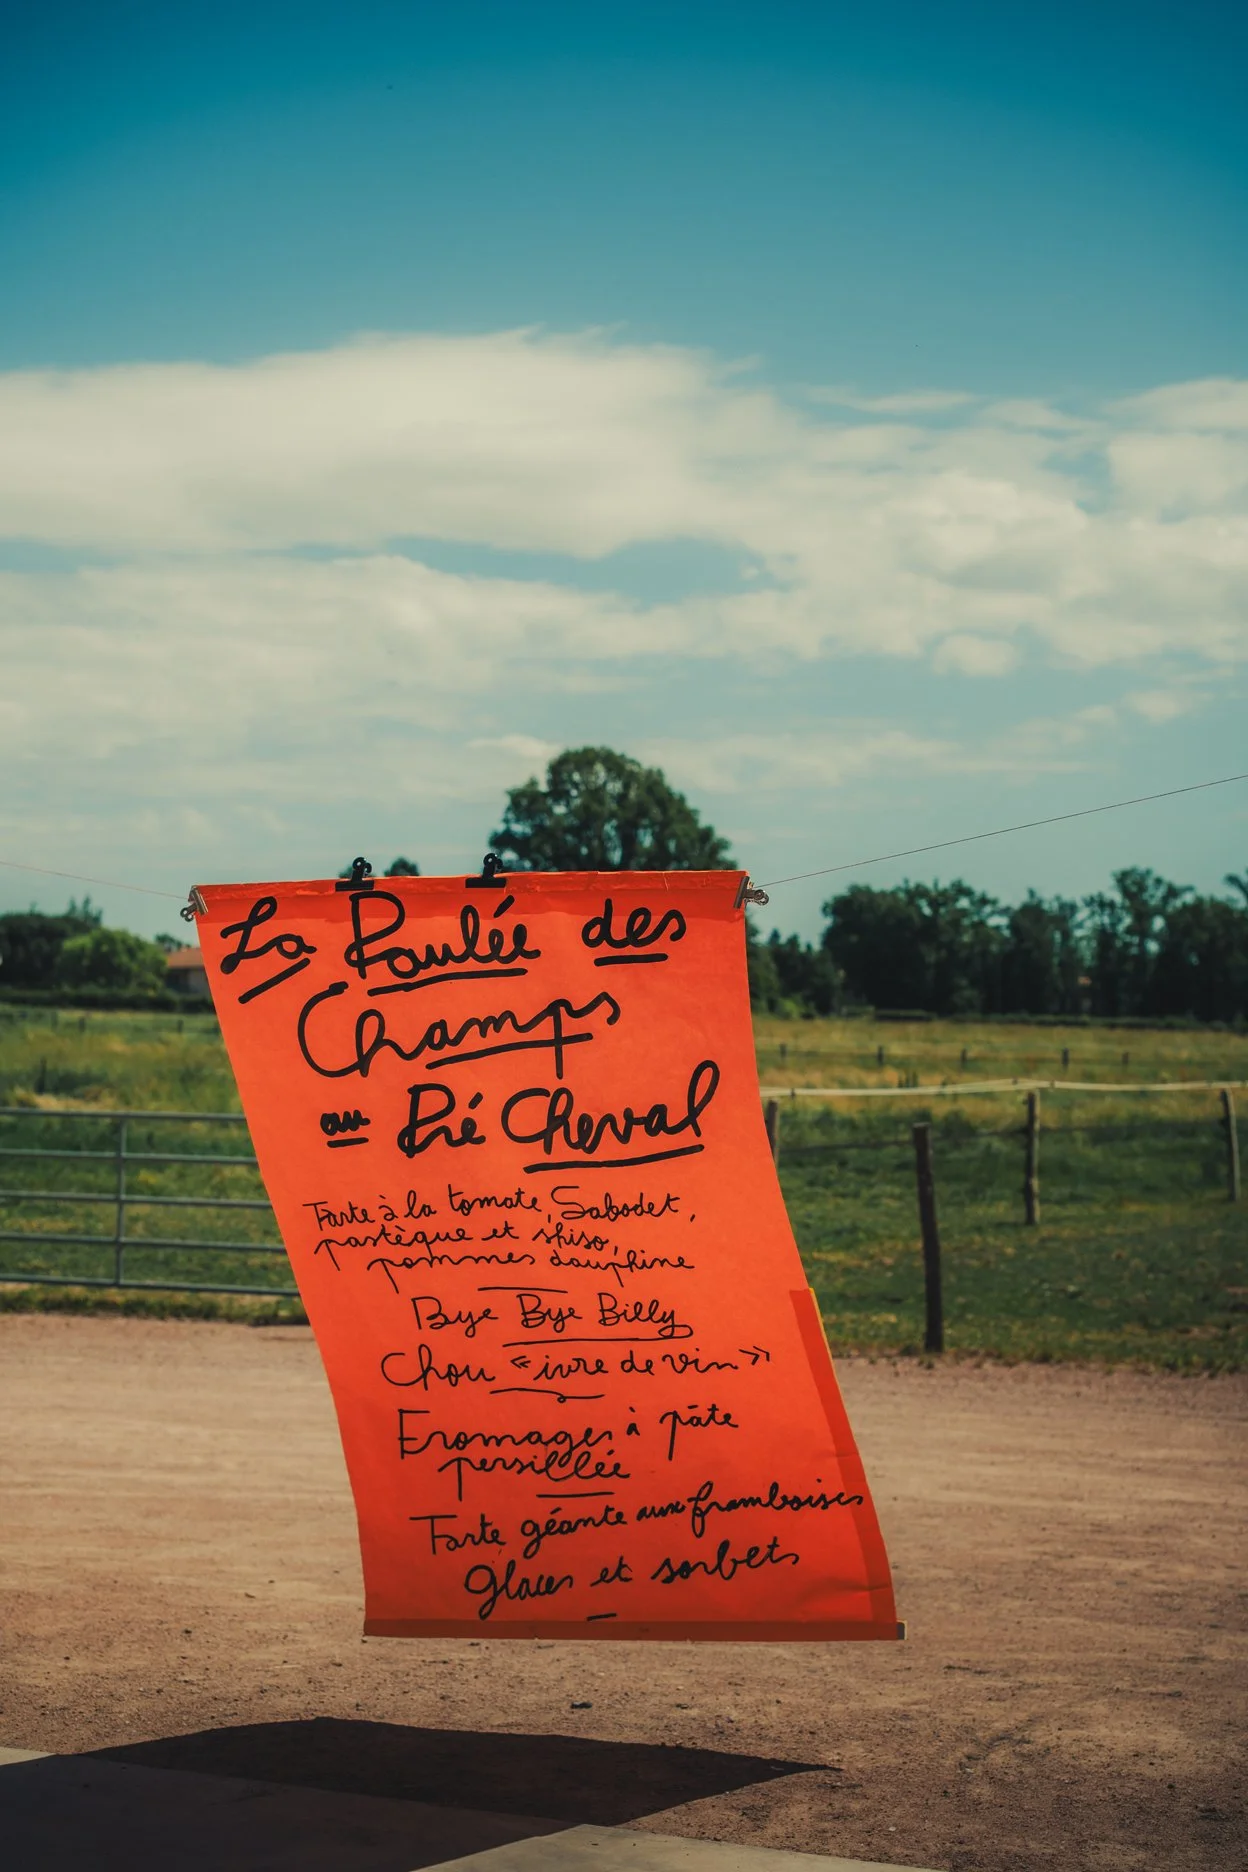 La Paulée des
Champs
au Pré Cheval
Tarte à la tomate, Sabodet,
pastèque et shiso,
pommes dauphine
Bye Bye Billy
Chou « ivre de vin »
Fromages à pâte
persillée
Tarte géante aux framboises
Glaces et sorbets